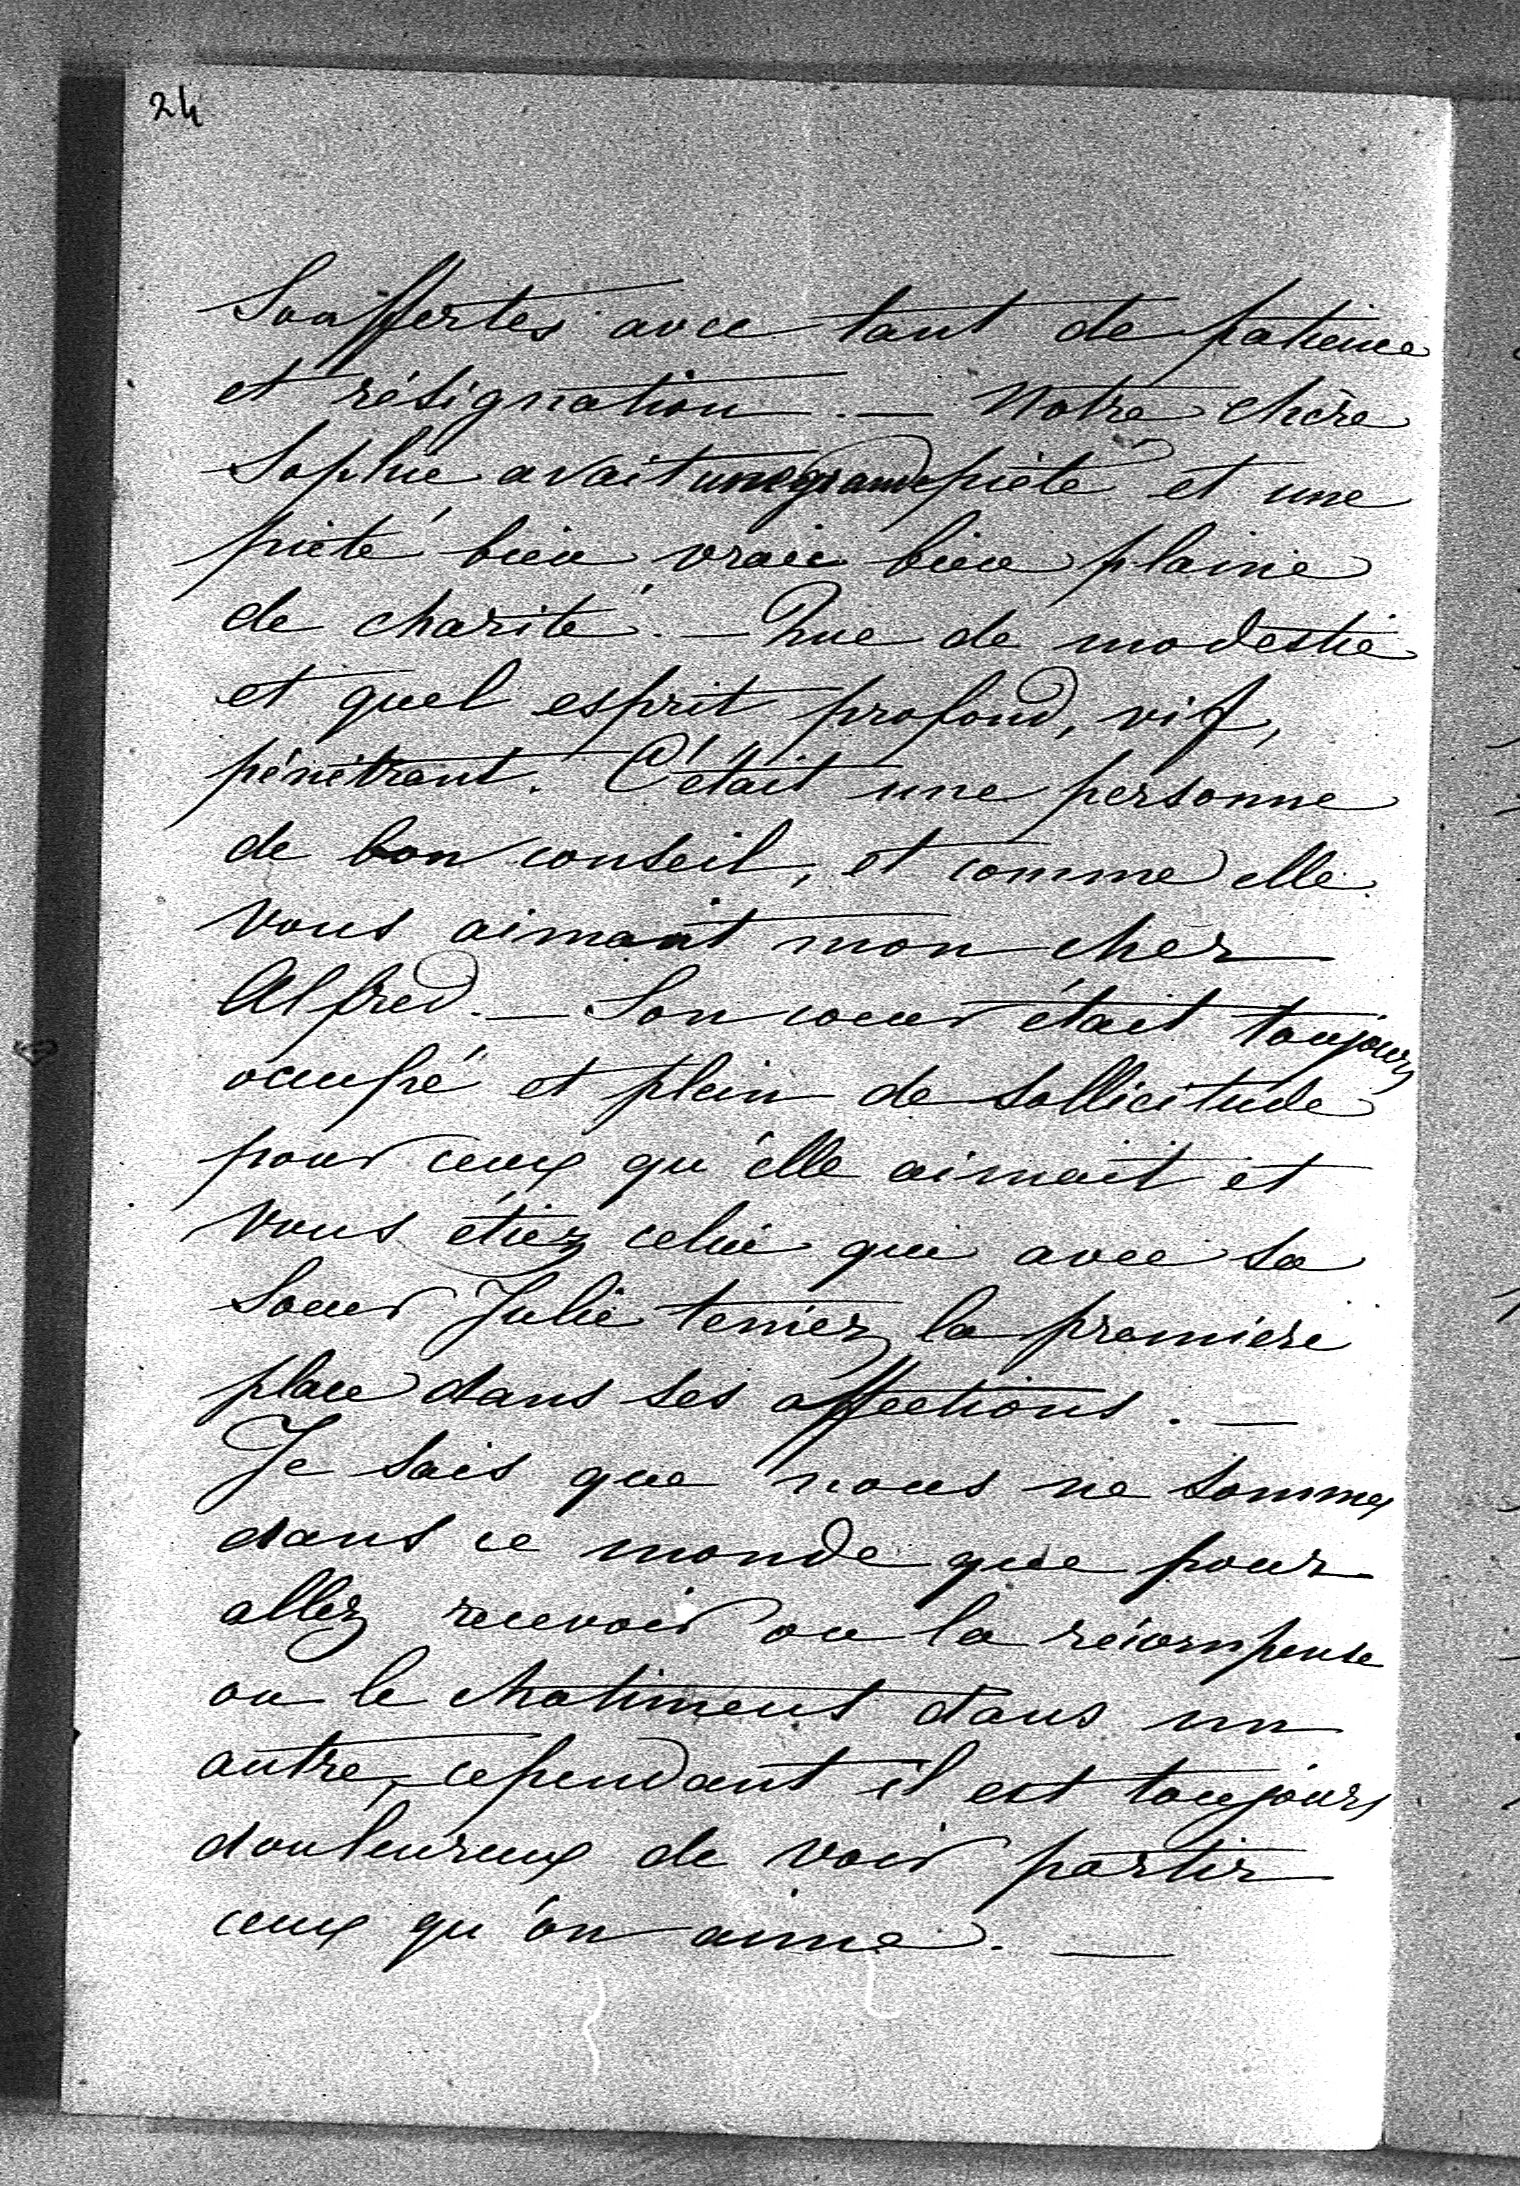 24
Souffertes avec tant de patience
et résignation. — Notre chère
Sophie avait une grande piété et une
piété bien vraie bien plaine
de charité. — Que de modestie
et quel esprit profond, vif,
pénétrant. C'était une personne
de bon conseil, et comme elle
vous aimait mon cher
Alfred. — Son coeur était toujours
occupé et plein de sollicitude
pour ceux qu'elle aimait et
vous étiez celui qui avec sa
Soeur Julie teniez la premiere
place dans ses affections. —
Je sais que nous ne sommes
dans ce monde que pour
allez recevoir ou la récompense
ou le chatiment dans un
autre, cependant il est toujours
douleureux de voir partir
ceux qu'on aime. —